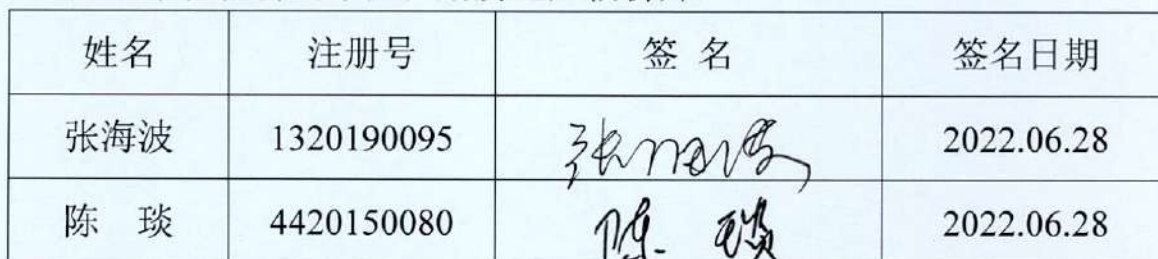 姓名 注册号 签 名 签名日期
张海波 1320190095 张海波 2022.06.28
陈 琰 4420150080 陈 琰 2022.06.28